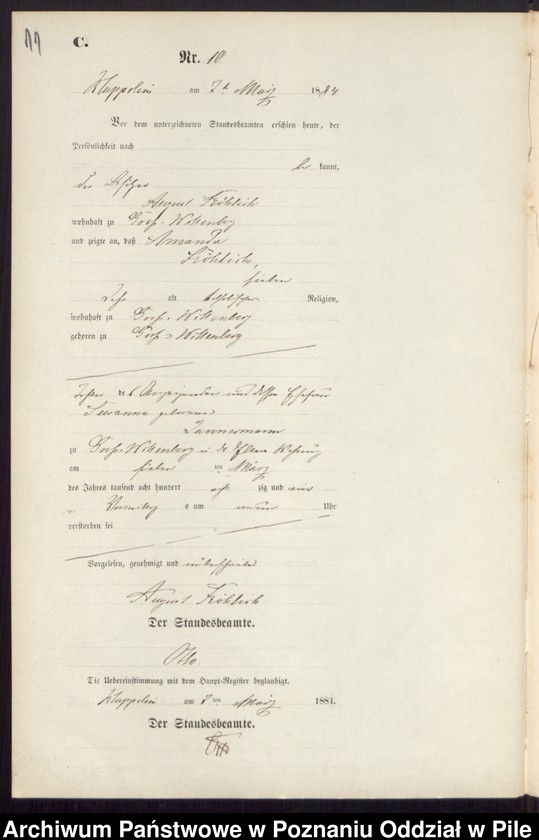 11
C.
Nr. 10
am 7 ten März 1884
Vor dem unterzeichneten Standesbeamten erschien heute, der
Persönlichkeit nach
be kannt,
der Besitzer
August Fröhlich
wohnhaft zu Groß Wittenberg
und zeigte an, daß Amanda
Fröhlich,
sieben
Jahr alt katholischer Religion,
wohnhaft zu Groß Wittenberg
geboren zu Groß Wittenberg
Tochter des Anzeigenden und dessen Ehefrau
Susanna geborene
zu Groß Wittenberg in der Eltern Wohnung
am sieben ten März
des Jahres tausend acht hundert acht zig und vier
Vormittag s um neun Uhr
verstorben sei
Vorgelesen, genehmigt und unterschrieben
August Fröhlich
Der Standesbeamte.
Otto
Die Uebereinstimmung mit dem Haupt-Register beglaubigt.
am 7 ten März 1884.
Der Standesbeamte.
Otto
Archiwum Państwowe w Poznaniu Oddział w Pile